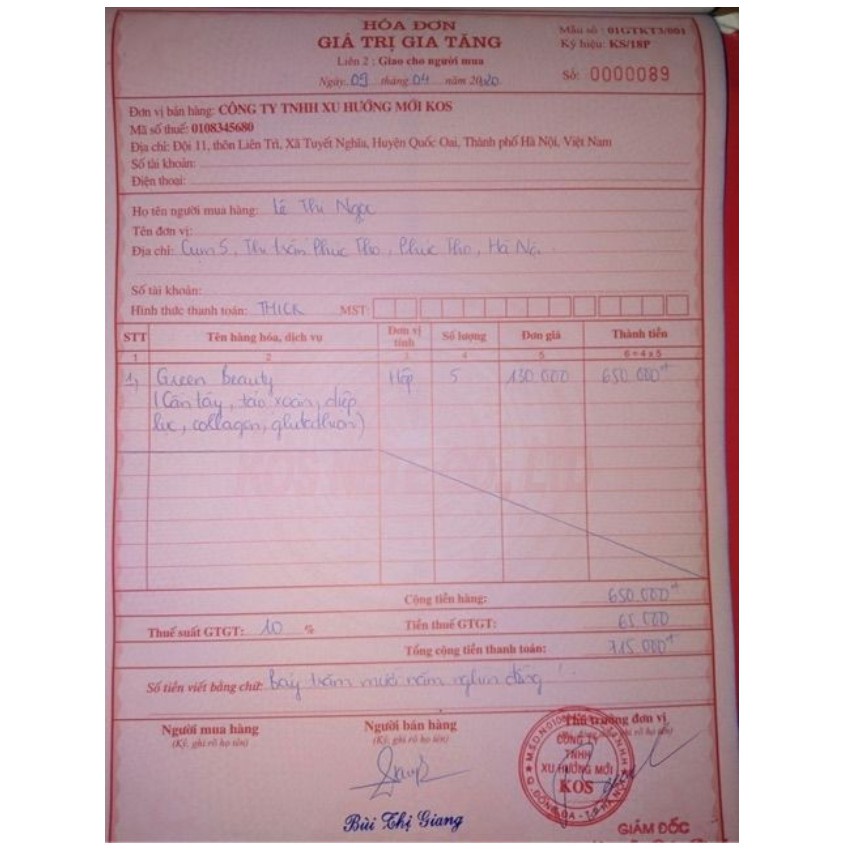 HÓA ĐƠN
GIÁ TRỊ GIA TĂNG
Liên 2 : Giao cho người mua
Ngày 09 tháng 04 năm 2020
Mẫu số : 01GTKT3/001
Ký hiệu: KS/18P
Số: 0000089
Đơn vị bán hàng: CÔNG TY TNHH XU HƯỚNG MỚI KOS
Mã số thuế: 0108345680
Địa chỉ: Đội 11, thôn Liên Trì, Xã Tuyết Nghĩa, Huyện Quốc Oai, Thành phố Hà Nội, Việt Nam
Số tài khoản:
Điện thoại:
Họ tên người mua hàng: Lê Thị Ngọc
Tên đơn vị:
Địa chỉ: Cụm 5, Thị trấn Phúc Thọ, Phúc Thọ, Hà Nội
Số tài khoản:
Hình thức thanh toán: TM/CK MST:
STT Tên hàng hóa, dịch vụ Đơn vị tính Số lượng Đơn giá Thành tiền
1 2 3 4 5 6 = 4 x 5
1, Green beauty Hộp 5 130.000 650.000đ
(Cần tây, tảo xoắn, diệp
lục, collagen, glutathion)
Cộng tiền hàng: 650.000đ
Thuế suất GTGT: 10 % Tiền thuế GTGT: 65.000
Tổng cộng tiền thanh toán: 715.000đ
Số tiền viết bằng chữ: Bảy trăm mười năm nghìn đồng
Người mua hàng Người bán hàng Thủ trưởng đơn vị
(Ký, ghi rõ họ tên) (Ký, ghi rõ họ tên) ghi rõ họ tên)
CÔNG TY
TNHH
XU HƯỚNG MỚI
KOS
Q. ĐỐNG ĐA - T.P HÀ NỘI
Bùi Thị Giang
GIÁM ĐỐC